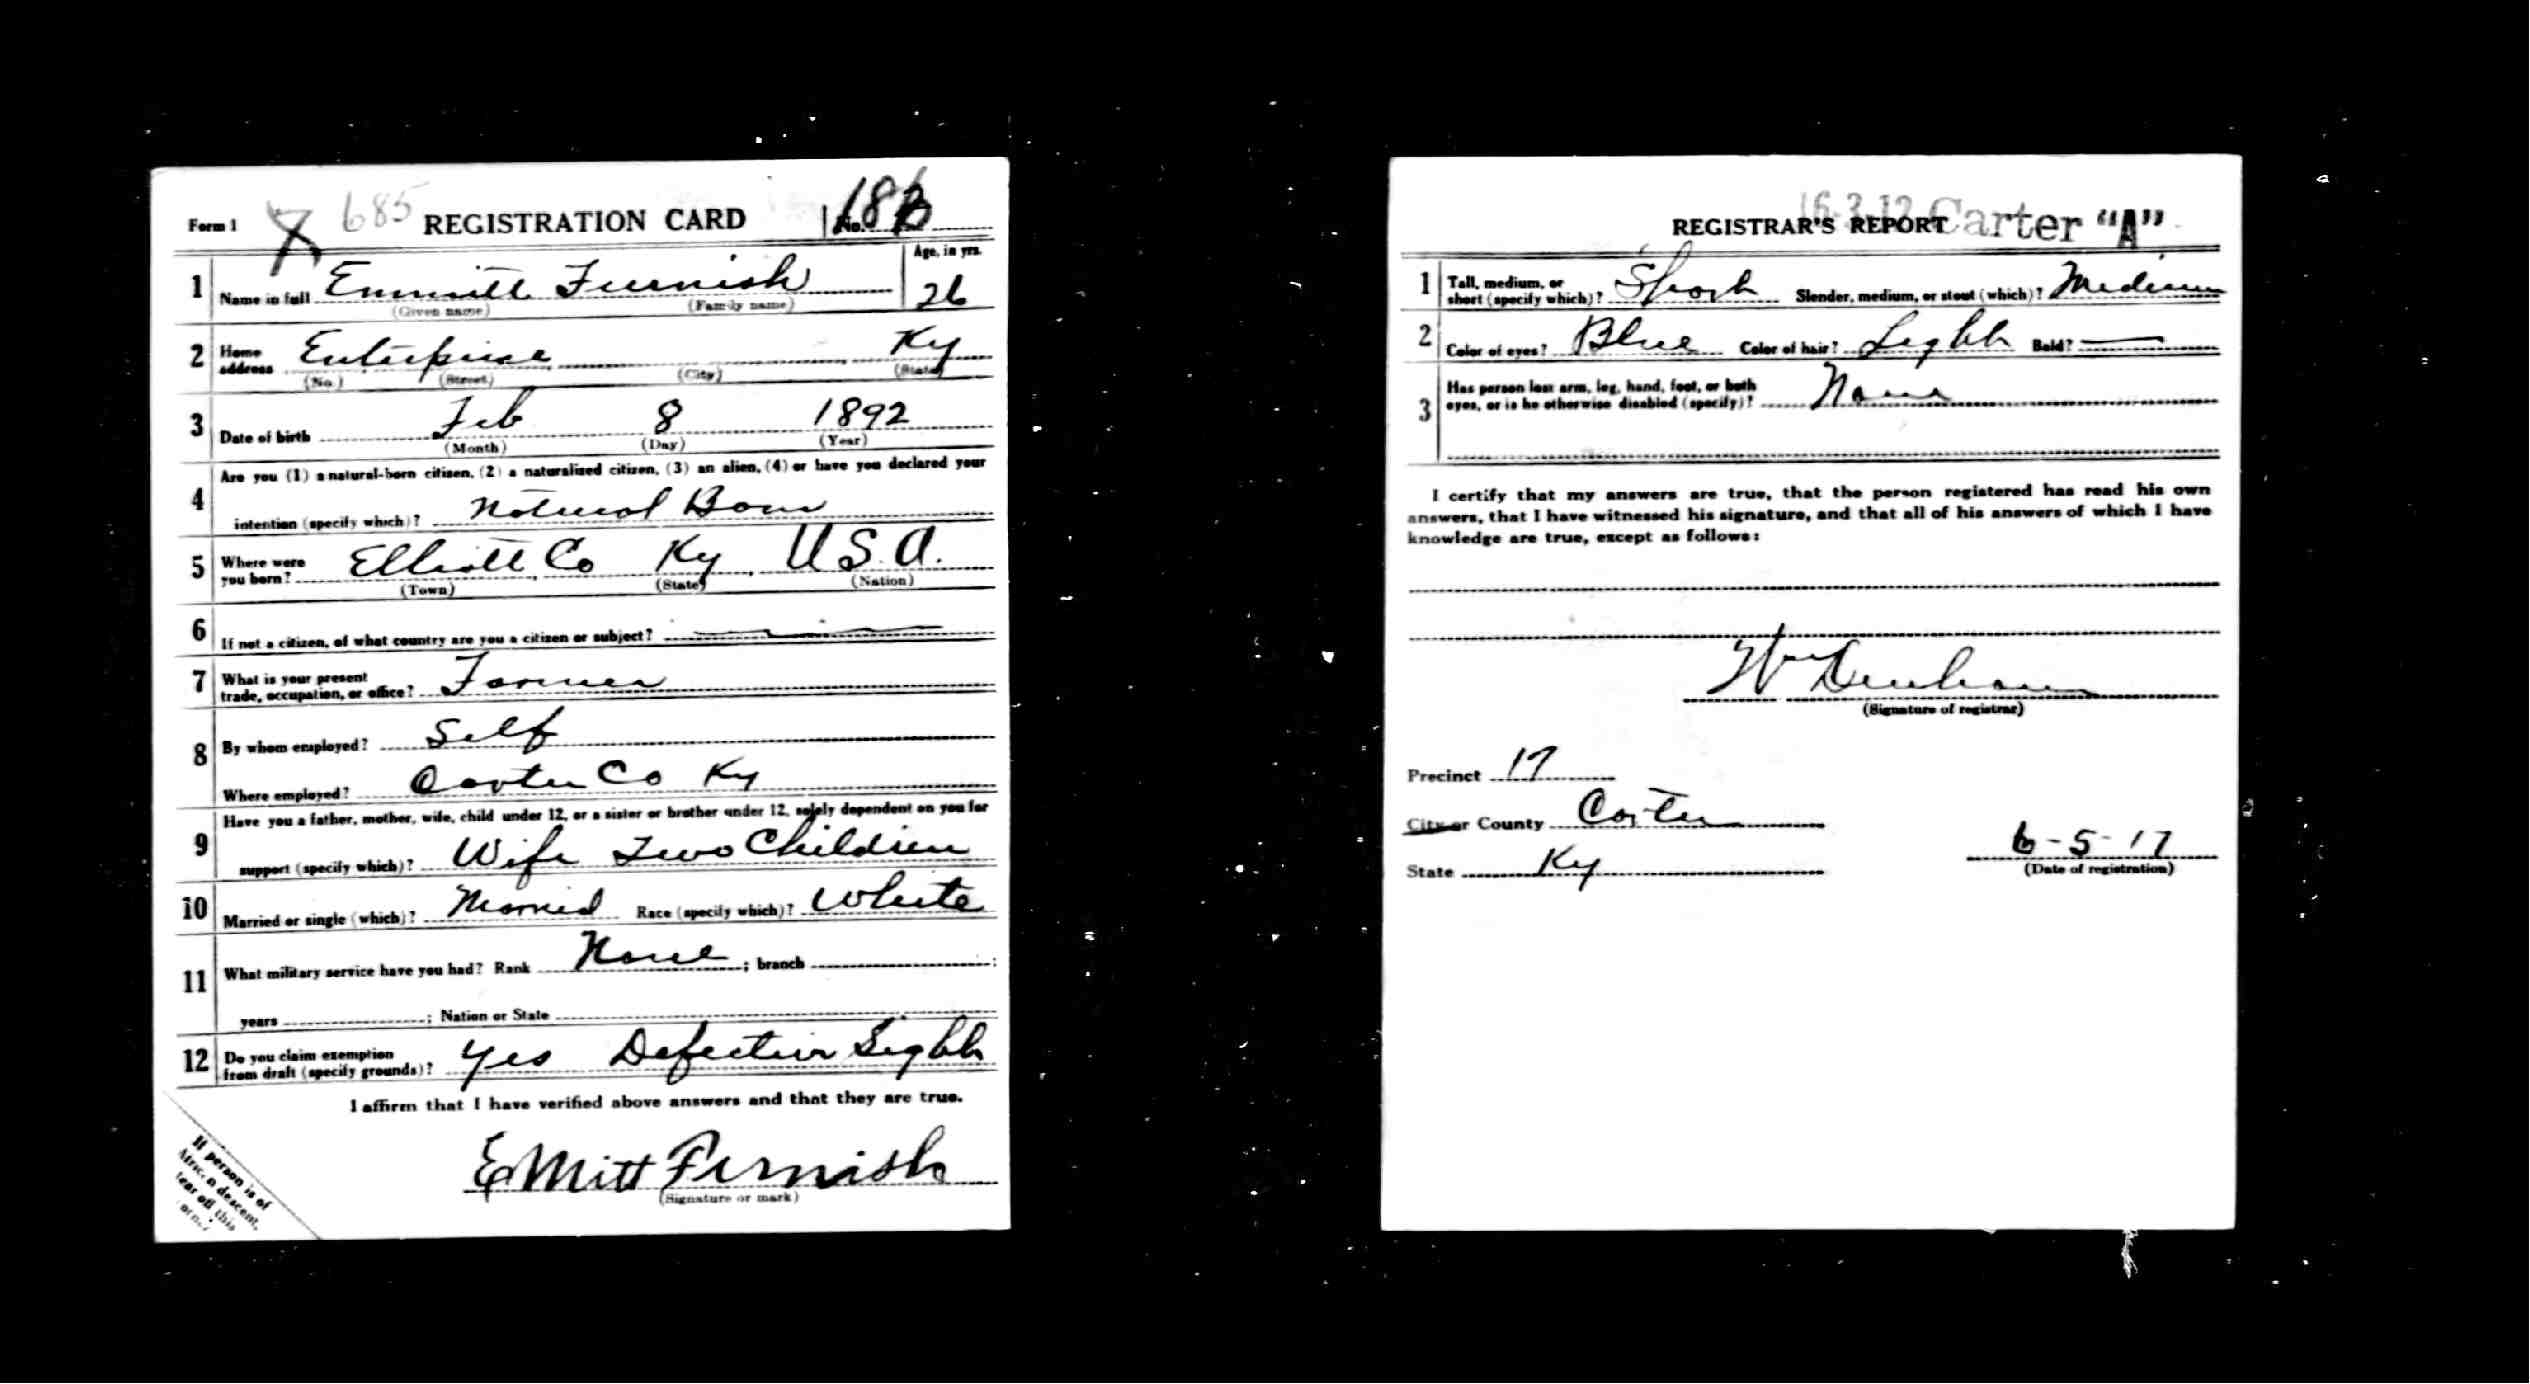 Form 1 685 REGISTRATION CARD No. 18
Age, in yrs.
1 Name in full Emmitt Furnish 26
(Given name) (Family name)
2 Home address Enterprise Ky
(No.) (Street) (City) (State)
3 Date of birth Feb 8 1892
(Month) (Day) (Year)
4 Are you (1) a natural-born citizen, (2) a naturalized citizen, (3) an alien, (4) or have you declared your
intention (specify which)? Natural Born
5 Where were you born? Elliott Co Ky U.S.A.
(Town) (State) (Nation)
6 If not a citizen, of what country are you a citizen or subject?
7 What is your present
trade, occupation, or office? Farmer
8 By whom employed? Self
Where employed? Carter Co Ky
9 Have you a father, mother, wife, child under 12, or a sister or brother under 12, solely dependent on you for
support (specify which)? Wife Two Children
10 Married or single (which)? Married Race (specify which)? White
11 What military service have you had? Rank None ; branch ;
years ; Nation or State
12 Do you claim exemption
from draft (specify grounds)? Yes Defective Sight
I affirm that I have verified above answers and that they are true.
EMmitt Furnish
(Signature or mark)
If person is of
African descent,
tear off this
corner
16-3-12 Carter "A"
REGISTRAR'S REPORT
1 Tall, medium, or
short (specify which)? Short Slender, medium, or stout (which)? Medium
2 Color of eyes? Blue Color of hair? Light Bald?
3 Has person lost arm, leg, hand, foot, or both
eyes, or is he otherwise disabled (specify)? None
I certify that my answers are true, that the person registered has read his own
answers, that I have witnessed his signature, and that all of his answers of which I have
knowledge are true, except as follows:
Wm
(Signature of registrar)
Precinct 17
City or County Carter
State Ky 6-5-17
(Date of registration)